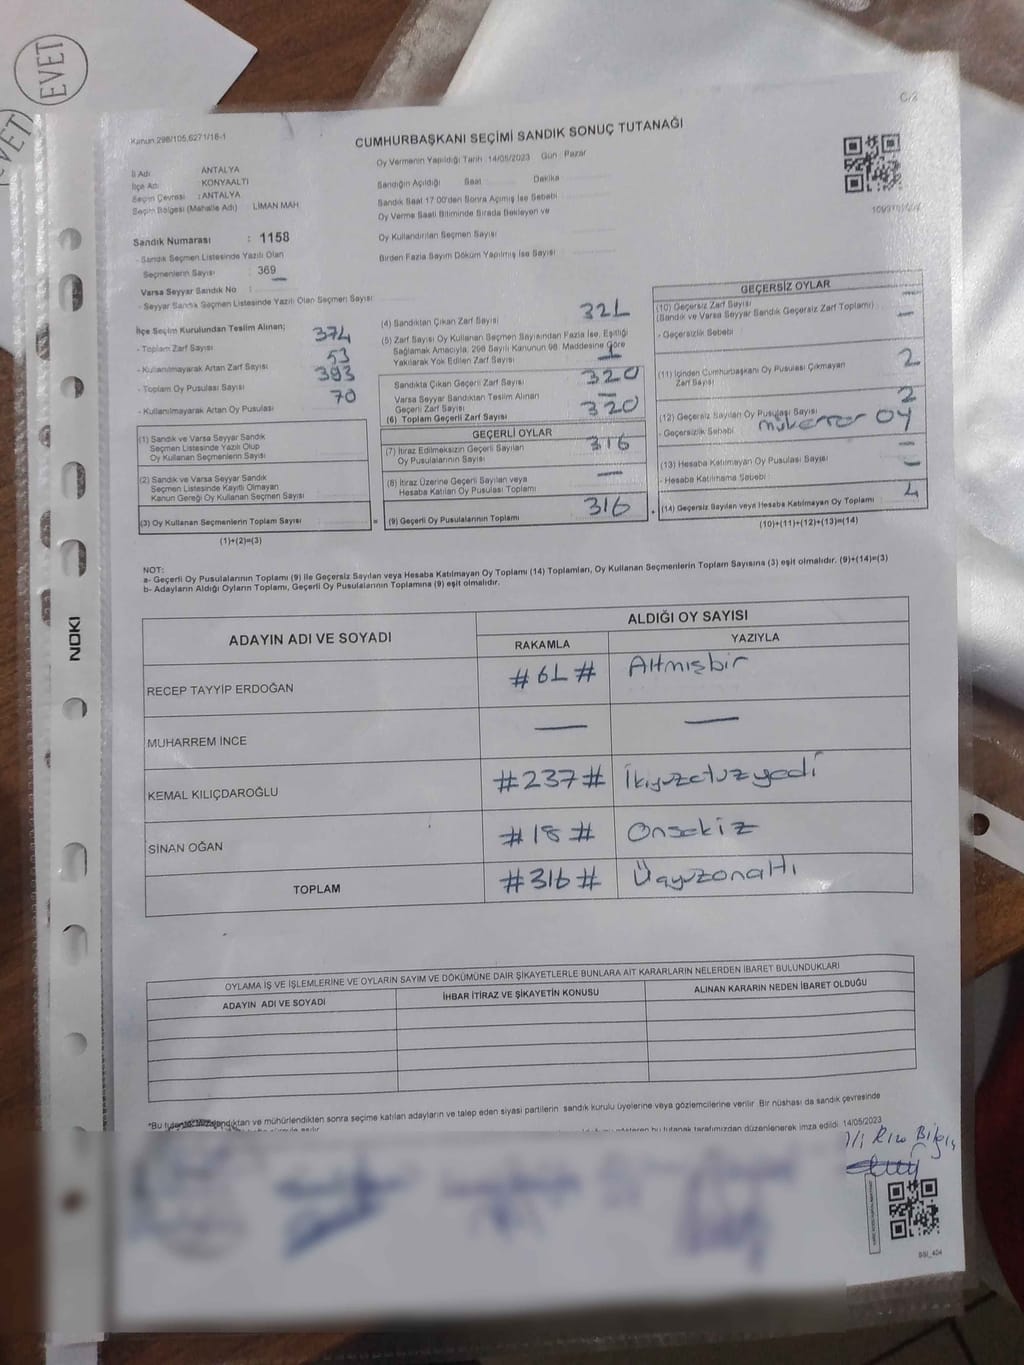 EVET
C/2
Kanun 298/105,6271/18-1
CUMHURBAŞKANI SEÇİMİ SANDIK SONUÇ TUTANAĞI
İl Adı ANTALYA
İlçe Adı KONYAALTI
Seçim Çevresi : ANTALYA
Seçim Bölgesi (Mahalle Adı) LİMAN MAH
Sandık Numarası : 1158
- Sandık Seçmen Listesinde Yazılı Olan
Seçmenlerin Sayısı : 369
Varsa Seyyar Sandık No
- Seyyar Sandık Seçmen Listesinde Yazılı Olan Seçmen Sayısı
Oy Vermenin Yapıldığı Tarih : 14/05/2023 Gün : Pazar
Sandığın Açıldığı Saat Dakika
Sandık Saat 17 00'den Sonra Açımış İse Sebebi
Oy Verme Saati Bitiminde Sırada Bekleyen ve
Oy Kullandırılan Seçmen Sayısı
Birden Fazla Sayım Döküm Yapılmış İse Sayısı
İlçe Seçim Kurulundan Teslim Alınan;
- Toplam Zarf Sayısı 374
- Kullanılmayarak Artan Zarf Sayısı 53
- Toplam Oy Pusulası Sayısı 393
- Kullanılmayarak Artan Oy Pusulası 70
(1) Sandık ve Varsa Seyyar Sandık
Seçmen Listesinde Yazılı Olup
Oy Kullanan Seçmenlerin Sayısı
(2) Sandık ve Varsa Seyyar Sandık
Seçmen Listesinde Kayıtlı Olmayan
Kanun Gereği Oy Kullanan Seçmen Sayısı
(3) Oy Kullanan Seçmenlerin Toplam Sayısı =
(1)+(2)=(3)
(4) Sandıktan Çıkan Zarf Sayısı 321
(5) Zarf Sayısı Oy Kullanan Seçmen Sayısından Fazla İse, Eşitliği
Sağlamak Amacıyla, 298 Sayılı Kanunun 98. Maddesine Göre
Yakılarak Yok Edilen Zarf Sayısı 1
Sandıkta Çıkan Geçerli Zarf Sayısı 320
Varsa Seyyar Sandıktan Teslim Alınan
Geçerli Zarf Sayısı —
(6) Toplam Geçerli Zarf Sayısı 320
GEÇERLİ OYLAR
(7) İtiraz Edilmeksizin Geçerli Sayılan
Oy Pusulalarının Sayısı 316
(8) İtiraz Üzerine Geçerli Sayılan veya
Hesaba Katılan Oy Pusulası Toplamı —
(9) Geçerli Oy Pusulalarının Toplamı 316 +
GEÇERSİZ OYLAR
(10) Geçersiz Zarf Sayısı —
(Sandık ve Varsa Seyyar Sandık Geçersiz Zarf Toplamı) —
- Geçersizlik Sebebi
(11) İçinden Cumhurbaşkanı Oy Pusulası Çıkmayan
Zarf Sayısı 2
(12) Geçersiz Sayılan Oy Pusulası Sayısı 2
- Geçersizlik Sebebi mükerrer OY
(13) Hesaba Katılmayan Oy Pusulası Sayısı —
- Hesaba Katılmama Sebebi —
(14) Geçersiz Sayılan veya Hesaba Katılmayan Oy Toplamı 4
(10)+(11)+(12)+(13)=(14)
NOT:
a- Geçerli Oy Pusulalarının Toplamı (9) ile Geçersiz Sayılan veya Hesaba Katılmayan Oy Toplamı (14) Toplamları, Oy Kullanan Seçmenlerin Toplam Sayısına (3) eşit olmalıdır. (9)+(14)=(3)
b- Adayların Aldığı Oyların Toplamı, Geçerli Oy Pusulalarının Toplamına (9) eşit olmalıdır.
NOKI
ADAYIN ADI VE SOYADI
ALDIĞI OY SAYISI
RAKAMLA YAZIYLA
RECEP TAYYİP ERDOĞAN #61# Altmışbir
MUHARREM İNCE — —
KEMAL KILIÇDAROĞLU #237# İkiyüzotuzyedi
SİNAN OĞAN #18# Onsekiz
TOPLAM #316# Üçyüzonaltı
OYLAMA İŞ VE İŞLEMLERİNE VE OYLARIN SAYIM VE DÖKÜMÜNE DAİR ŞİKAYETLERLE BUNLARA AİT KARARLARIN NELERDEN İBARET BULUNDUKLARI
ADAYIN ADI VE SOYADI İHBAR İTİRAZ VE ŞİKAYETİN KONUSU ALINAN KARARIN NEDEN İBARET OLDUĞU
*Bu ve mühürlendikten sonra seçime katılan adayların ve talep eden siyasi partilerin sandık kurulu üyelerine veya gözlemcilerine verilir. Bir nüshası da sandık çevresinde
bu tutanak tarafımızdan düzenlenerek imza edildi. 14/05/2023
BSI_404